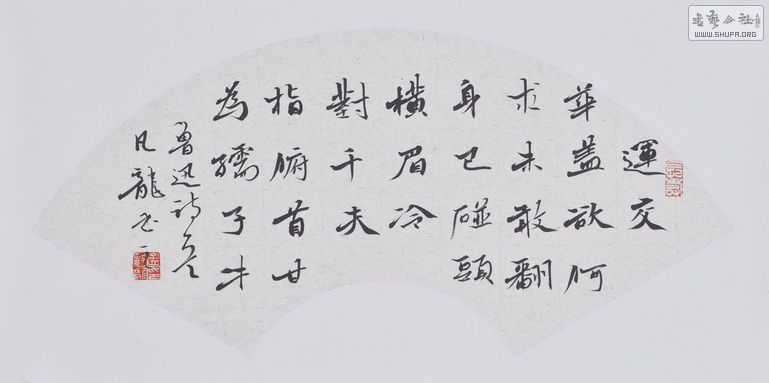 運交
華蓋欲何
求未敢翻
身已碰頭
橫眉冷
對千夫
指俯首甘
為孺子牛
魯迅詩
凡龍書
書藝公社
WWW.SHUFA.ORG